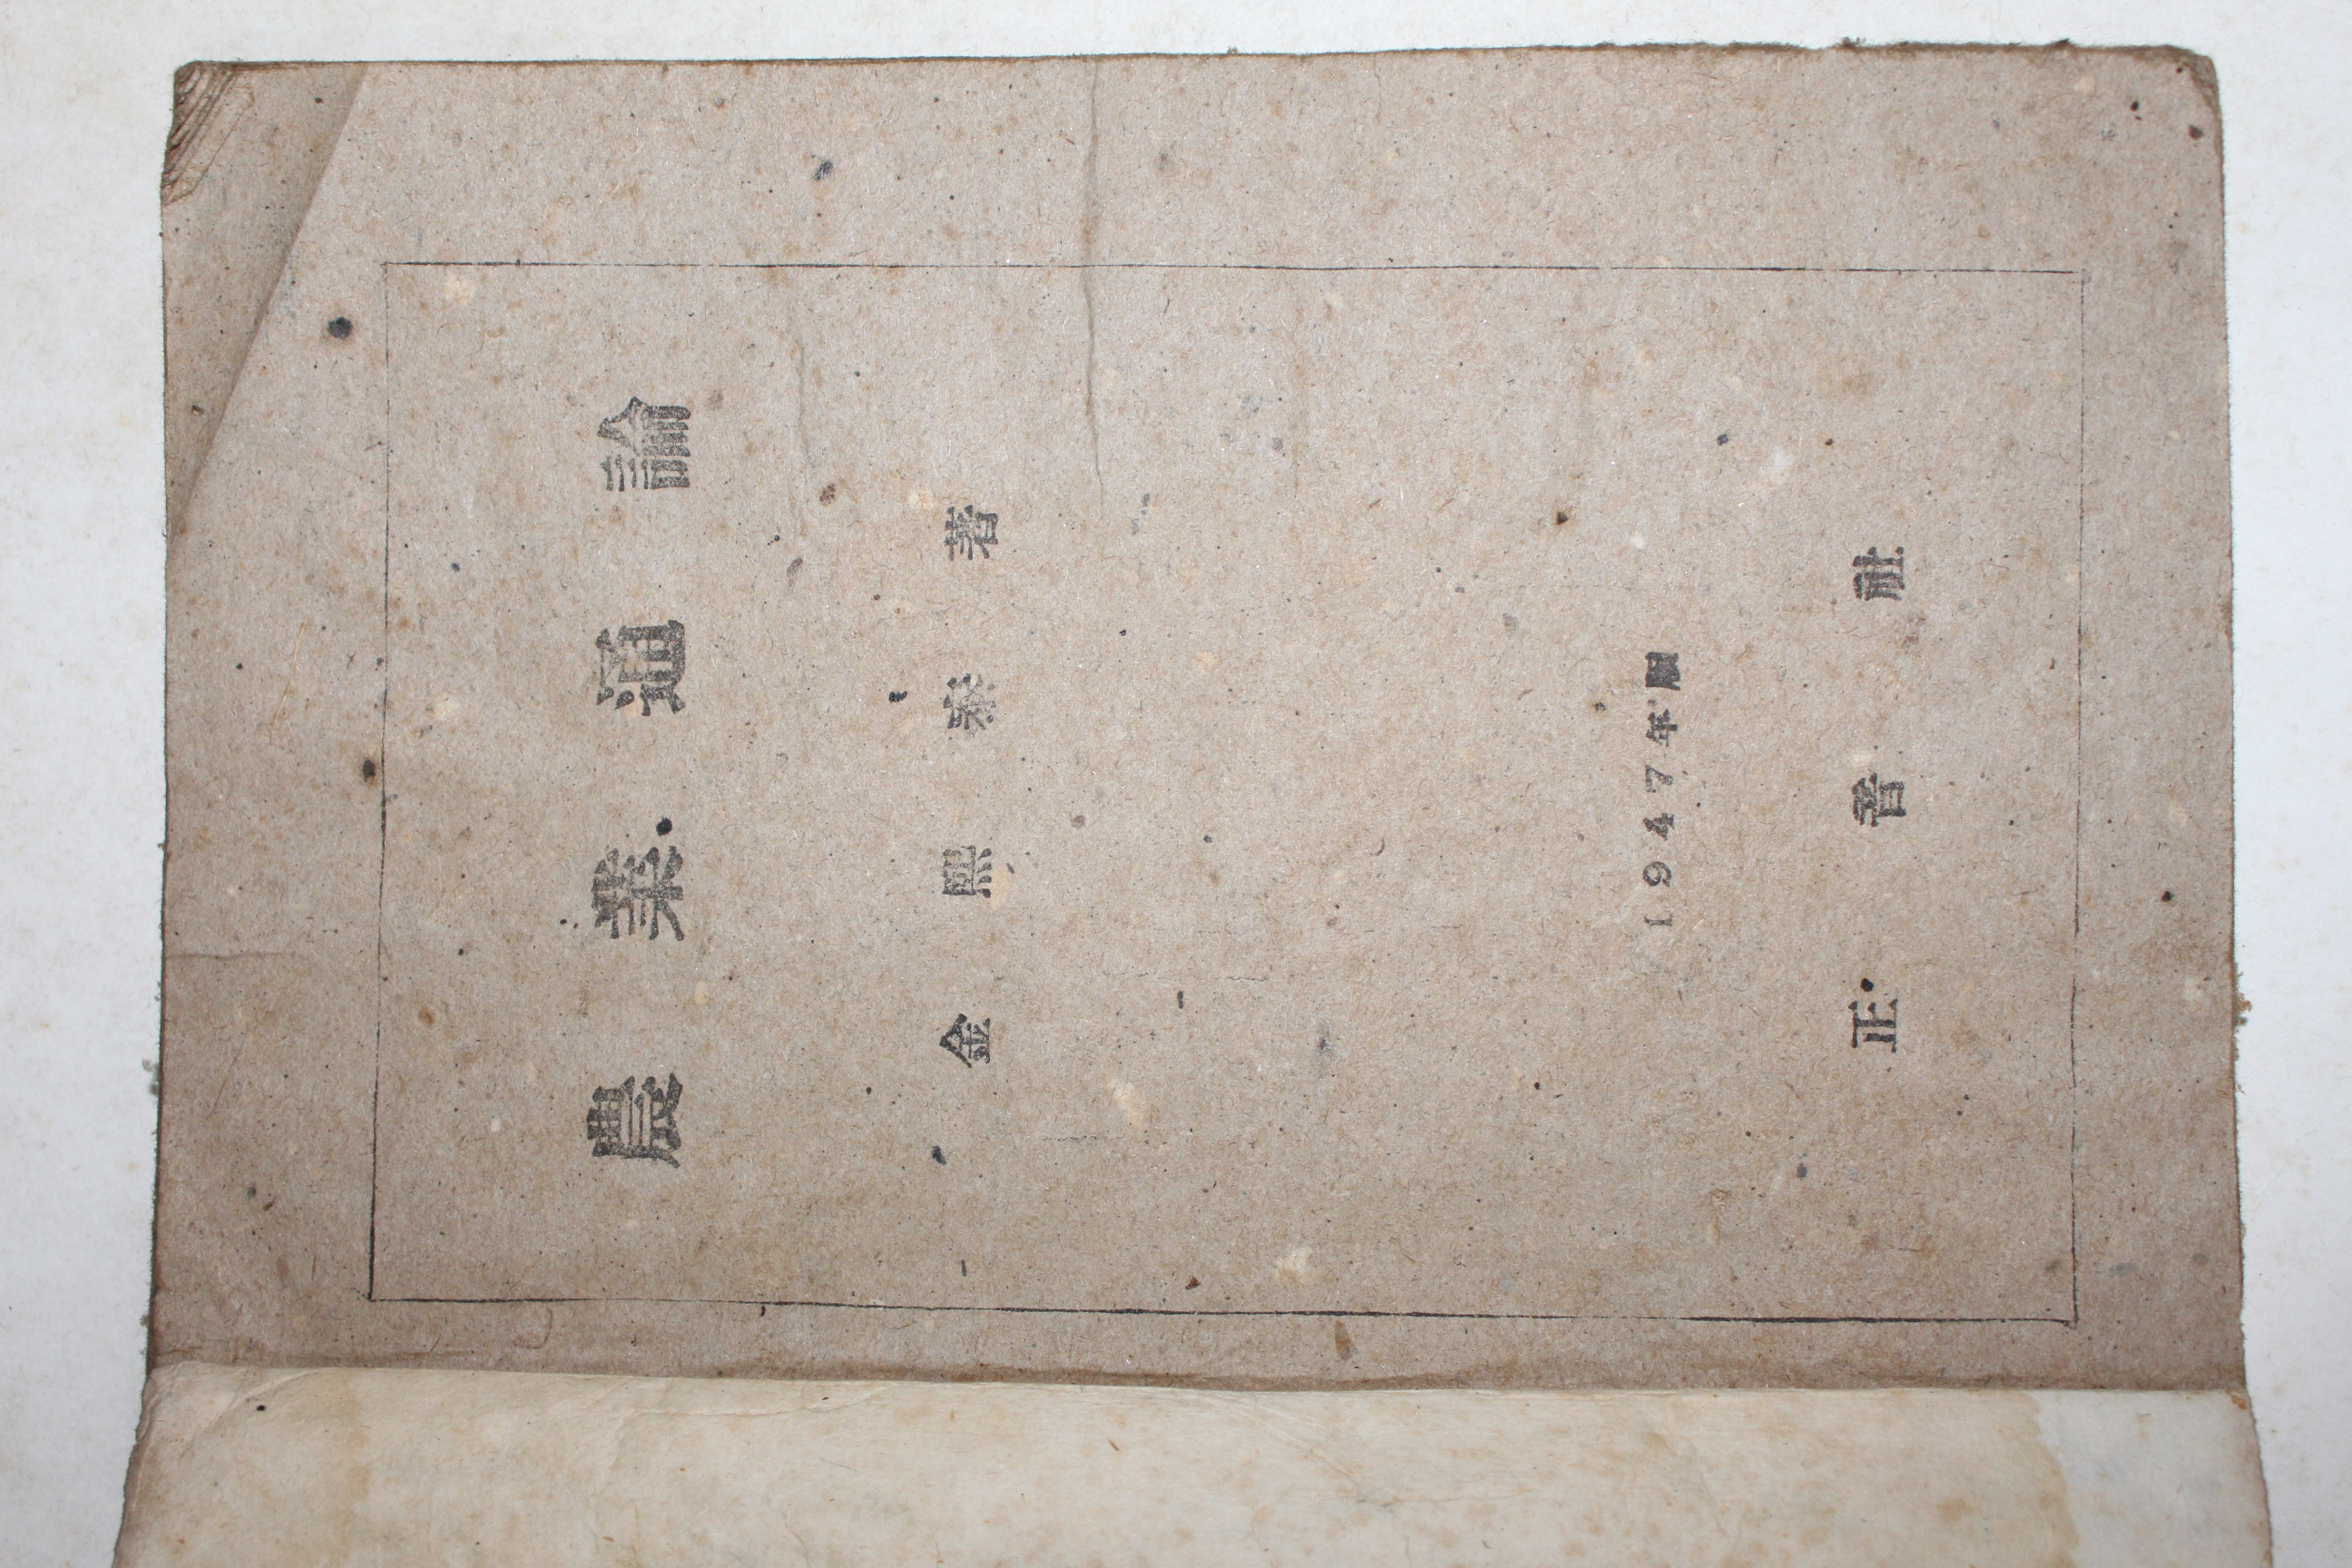 農業通論
金熙泰著
1947年
正音社